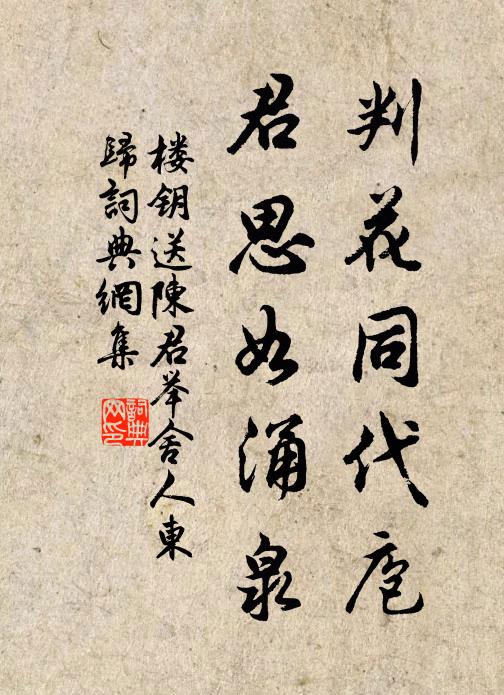 判花同代庖
君思如涌泉
楼钥送陳君举舍人東
歸詞典網集
詞典网印